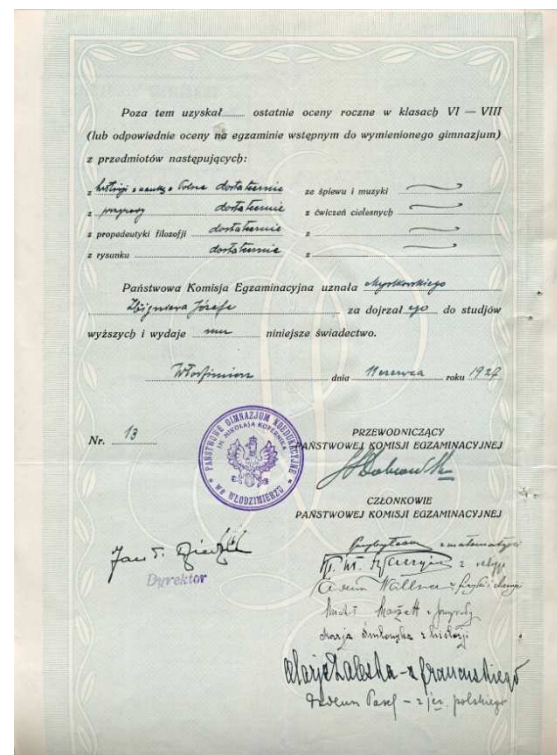 Poza tem uzyskał ostatnie oceny roczne w klasach VI — VIII
(lub odpowiednie oceny na egzaminie wstępnym do wymienionego gimnazjum)
z przedmiotów następujących:
z historji z nauką o Polsce dostatecznie ze śpiewu i muzyki
z przyrody dostatecznie z ćwiczeń cielesnych
z propedeutyki filozofji dostatecznie z
z rysunku dostatecznie z
Państwowa Komisja Egzaminacyjna uznała Myszkowskiego
Zbigniewa Józefa za dojrzałego do studjów
wyższych i wydaje mu niniejsze świadectwo.
Włodzimierz dnia 11 czerwca roku 1927
Nr. 13
PAŃSTWOWE GIMNAZJUM KOEDUKACYJNE
IM. MIKOŁAJA KOPERNIKA
WE WŁODZIMIERZU
PRZEWODNICZĄCY
PAŃSTWOWEJ KOMISJI EGZAMINACYJNEJ
CZŁONKOWIE
PAŃSTWOWEJ KOMISJI EGZAMINACYJNEJ
Jan
Dyrektor
z matematyki
z religji
z fizyki i chemji
z przyrody
Marja z historji
Marja Zaleska - z francuskiego
- z jęz. polskiego